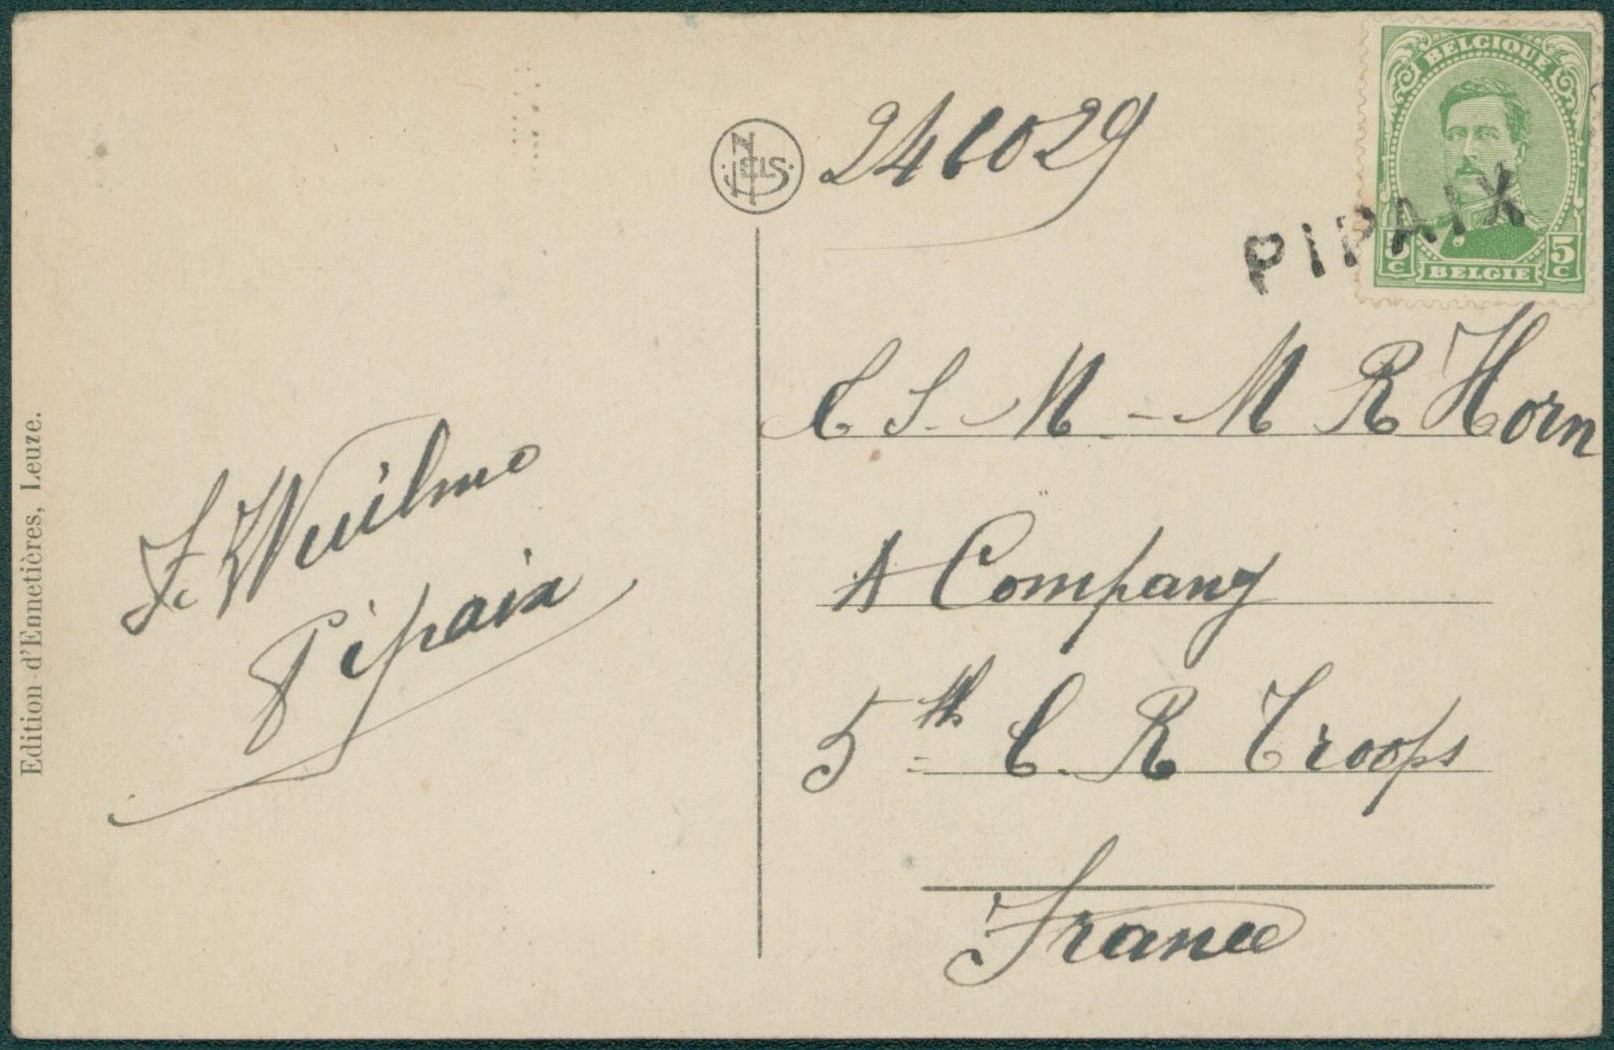 Edition d'Ennetières, Leuze.
NELS
246029
BELGIQUE
5 C 5 C
BELGIE
PIPAIX
C S. M - M R Horn
A Company
5th C. R Troops
France
Pipaix